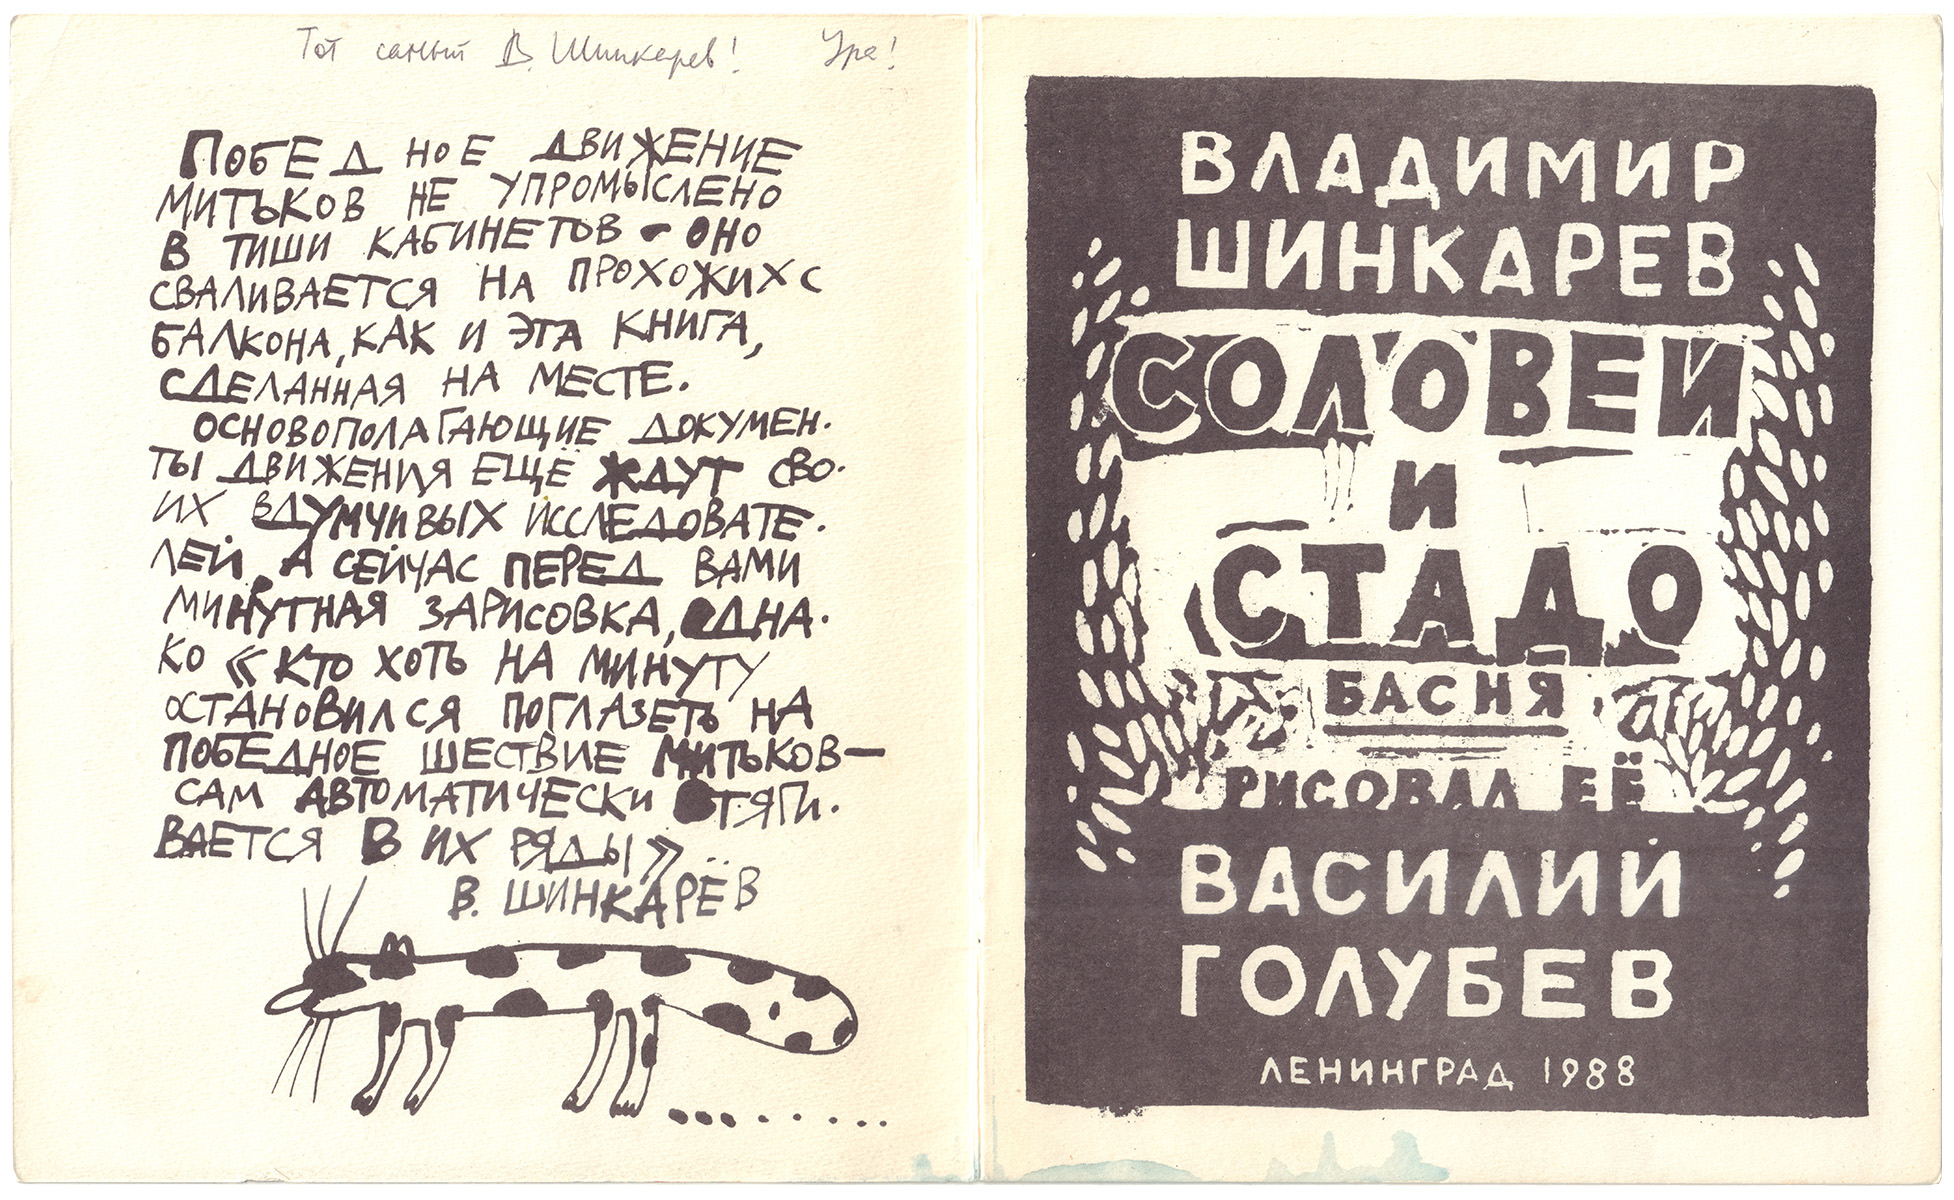 Тот самый В. Шинкарев! Ура!
ПОБЕДНОЕ ДВИЖЕНИЕ
МИТЬКОВ НЕ УПРОМЫСЛЕНО
В ТИШИ КАБИНЕТОВ – ОНО
СВАЛИВАЕТСЯ НА ПРОХОЖИХ С
БАЛКОНА, КАК И ЭТА КНИГА,
СДЕЛАННАЯ НА МЕСТЕ.
ОСНОВОПОЛАГАЮЩИЕ ДОКУМЕН-
ТЫ ДВИЖЕНИЯ ЕЩЁ ЖДУТ СВО-
ИХ ВДУМЧИВЫХ ИССЛЕДОВАТЕ-
ЛЕЙ, А СЕЙЧАС ПЕРЕД ВАМИ
МИНУТНАЯ ЗАРИСОВКА, ОДНА-
КО «КТО ХОТЬ НА МИНУТУ
ОСТАНОВИЛСЯ ПОГЛАЗЕТЬ НА
ПОБЕДНОЕ ШЕСТВИЕ МИТЬКОВ—
САМ АВТОМАТИЧЕСКИ ВТЯГИ-
ВАЕТСЯ В ИХ РЯДЫ»
В. ШИНКАРЁВ
ВЛАДИМИР
ШИНКАРЕВ
СОЛОВЕЙ
И
СТАДО
БАСНЯ
РИСОВАЛ ЕЁ
ВАСИЛИЙ
ГОЛУБЕВ
ЛЕНИНГРАД 1988